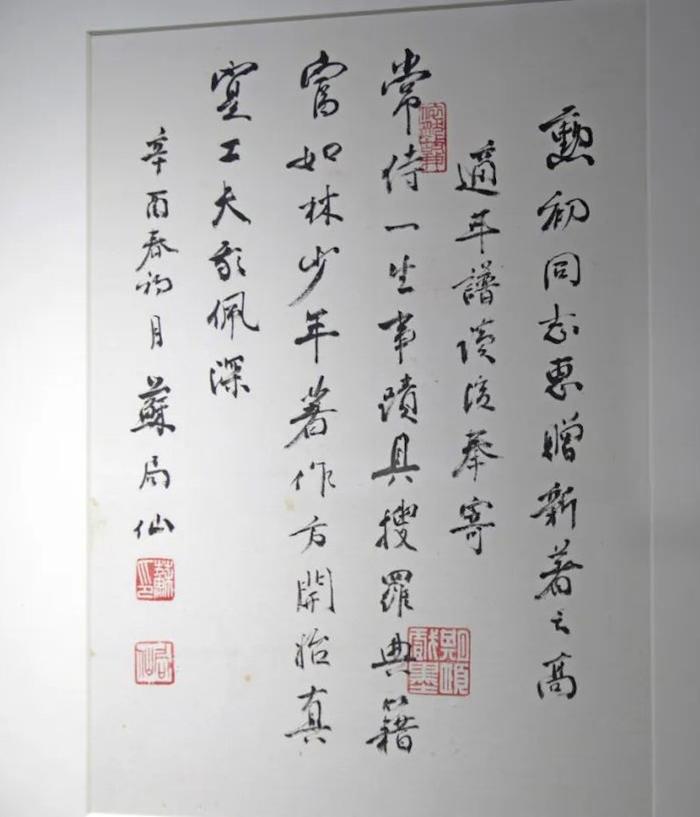 勳初同志惠贈新著之高
適年譜讀後奉寄
常侍一生事蹟具搜羅典籍
富如林少年著作方開始真
寔工夫敬佩深
辛酉春初月蘇局仙